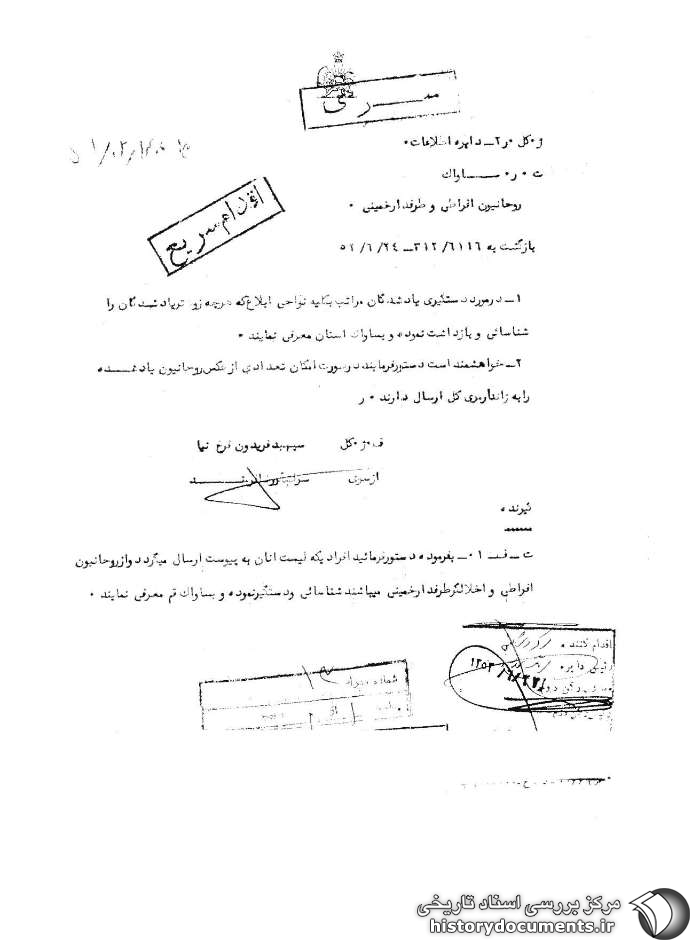 سری
ژ۰کل ۰ر۲ــ دایره اطلاعات۰
اقدام سریع
ت ۰ ر۰ ســـاواک
روحانیون افراطی و طرفدارخمینی ۰
بازگشت به ۳۱۲/۶۱۱۶ــ
۱ــ درمورد دستگیری یادشدگان مراتب بکلیه نواحی ابلاغ که هرچه زودتر یادشدگان را
شناسائی و بازداشت نموده و بساواک استان معرفی نمایند ۰
۲ــ خواهشمند است دستورفرمایند درصورت امکان تعدادی از عکس روحانیون یادشــده
را به ژاندارمری کل ارسال دارند ۰ ر
ف ۰ژ ۰کل سپهبد فریدون فرخ نیا
ازسوی
گیرنده
ت ــ فــ ۰۱ــ بفرموده دستورفرمائید افرادیکه لیست آنان به پیوست ارسال میگردد وازروحانیون
افراطی و اخلالگرطرفدارخمینی میباشند شناسائی ودستگیرنموده و بساواک قم معرفی نمایند ۰
اقدام کننده ۰
رئیس دایره ۰
شماره
مرکز بررسی اسناد تاریخی
historydocuments.ir